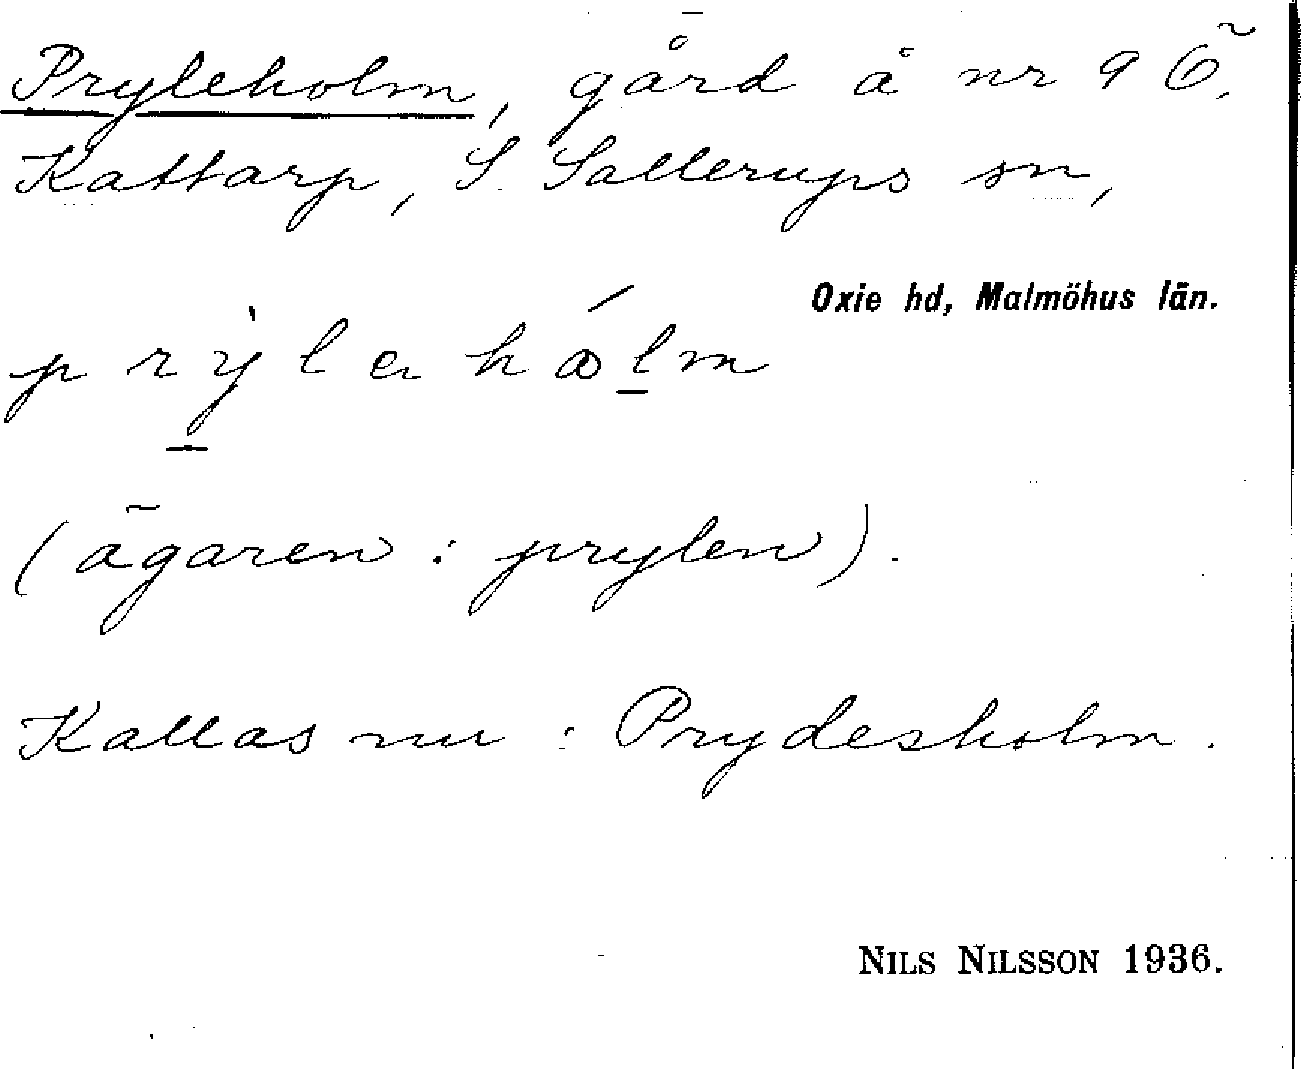 Pryleholm, gård å nr 9 Ö.
Kattarp, S. Sallerups sn,
Oxie hd, Malmöhus län.
(ägaren: prylen).
Kallas nu: Prydesholm.
NILS NILSSON 1936.